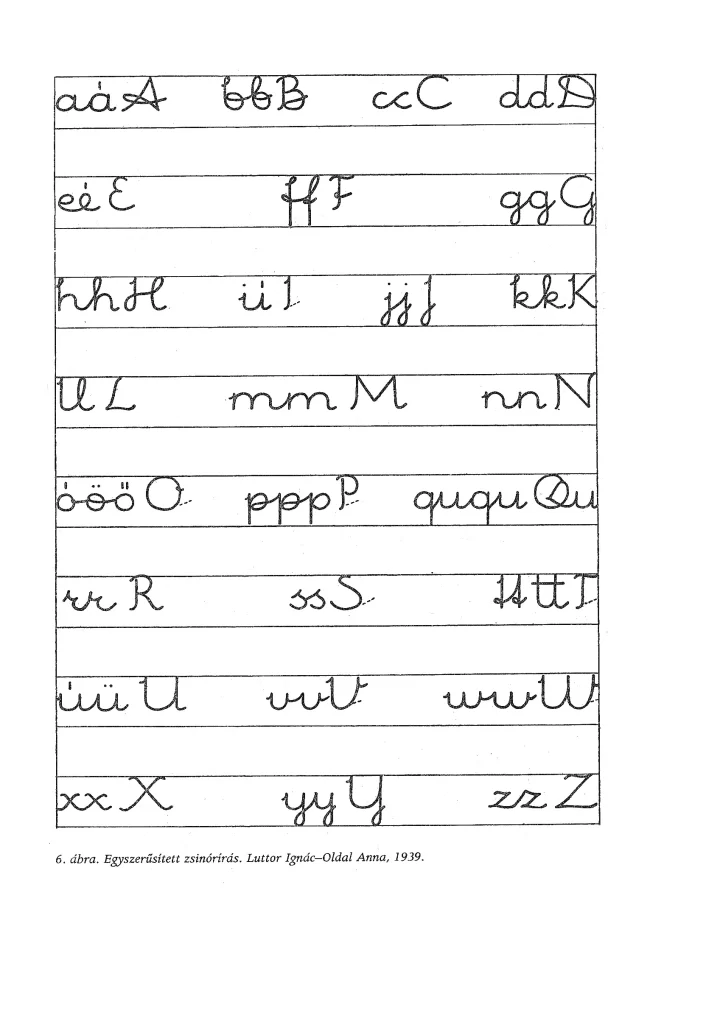 aáA bbB ccC ddD
eéE ffF ggG
hhH iíI jjJ kkK
llL mmM nnN
óöőO pppP ququQu
rrR ssS ttttT
úuüU vvV wwW
xxX yyY zzZ
6. ábra. Egyszerűsített zsinórírás. Luttor Ignác–Oldal Anna, 1939.